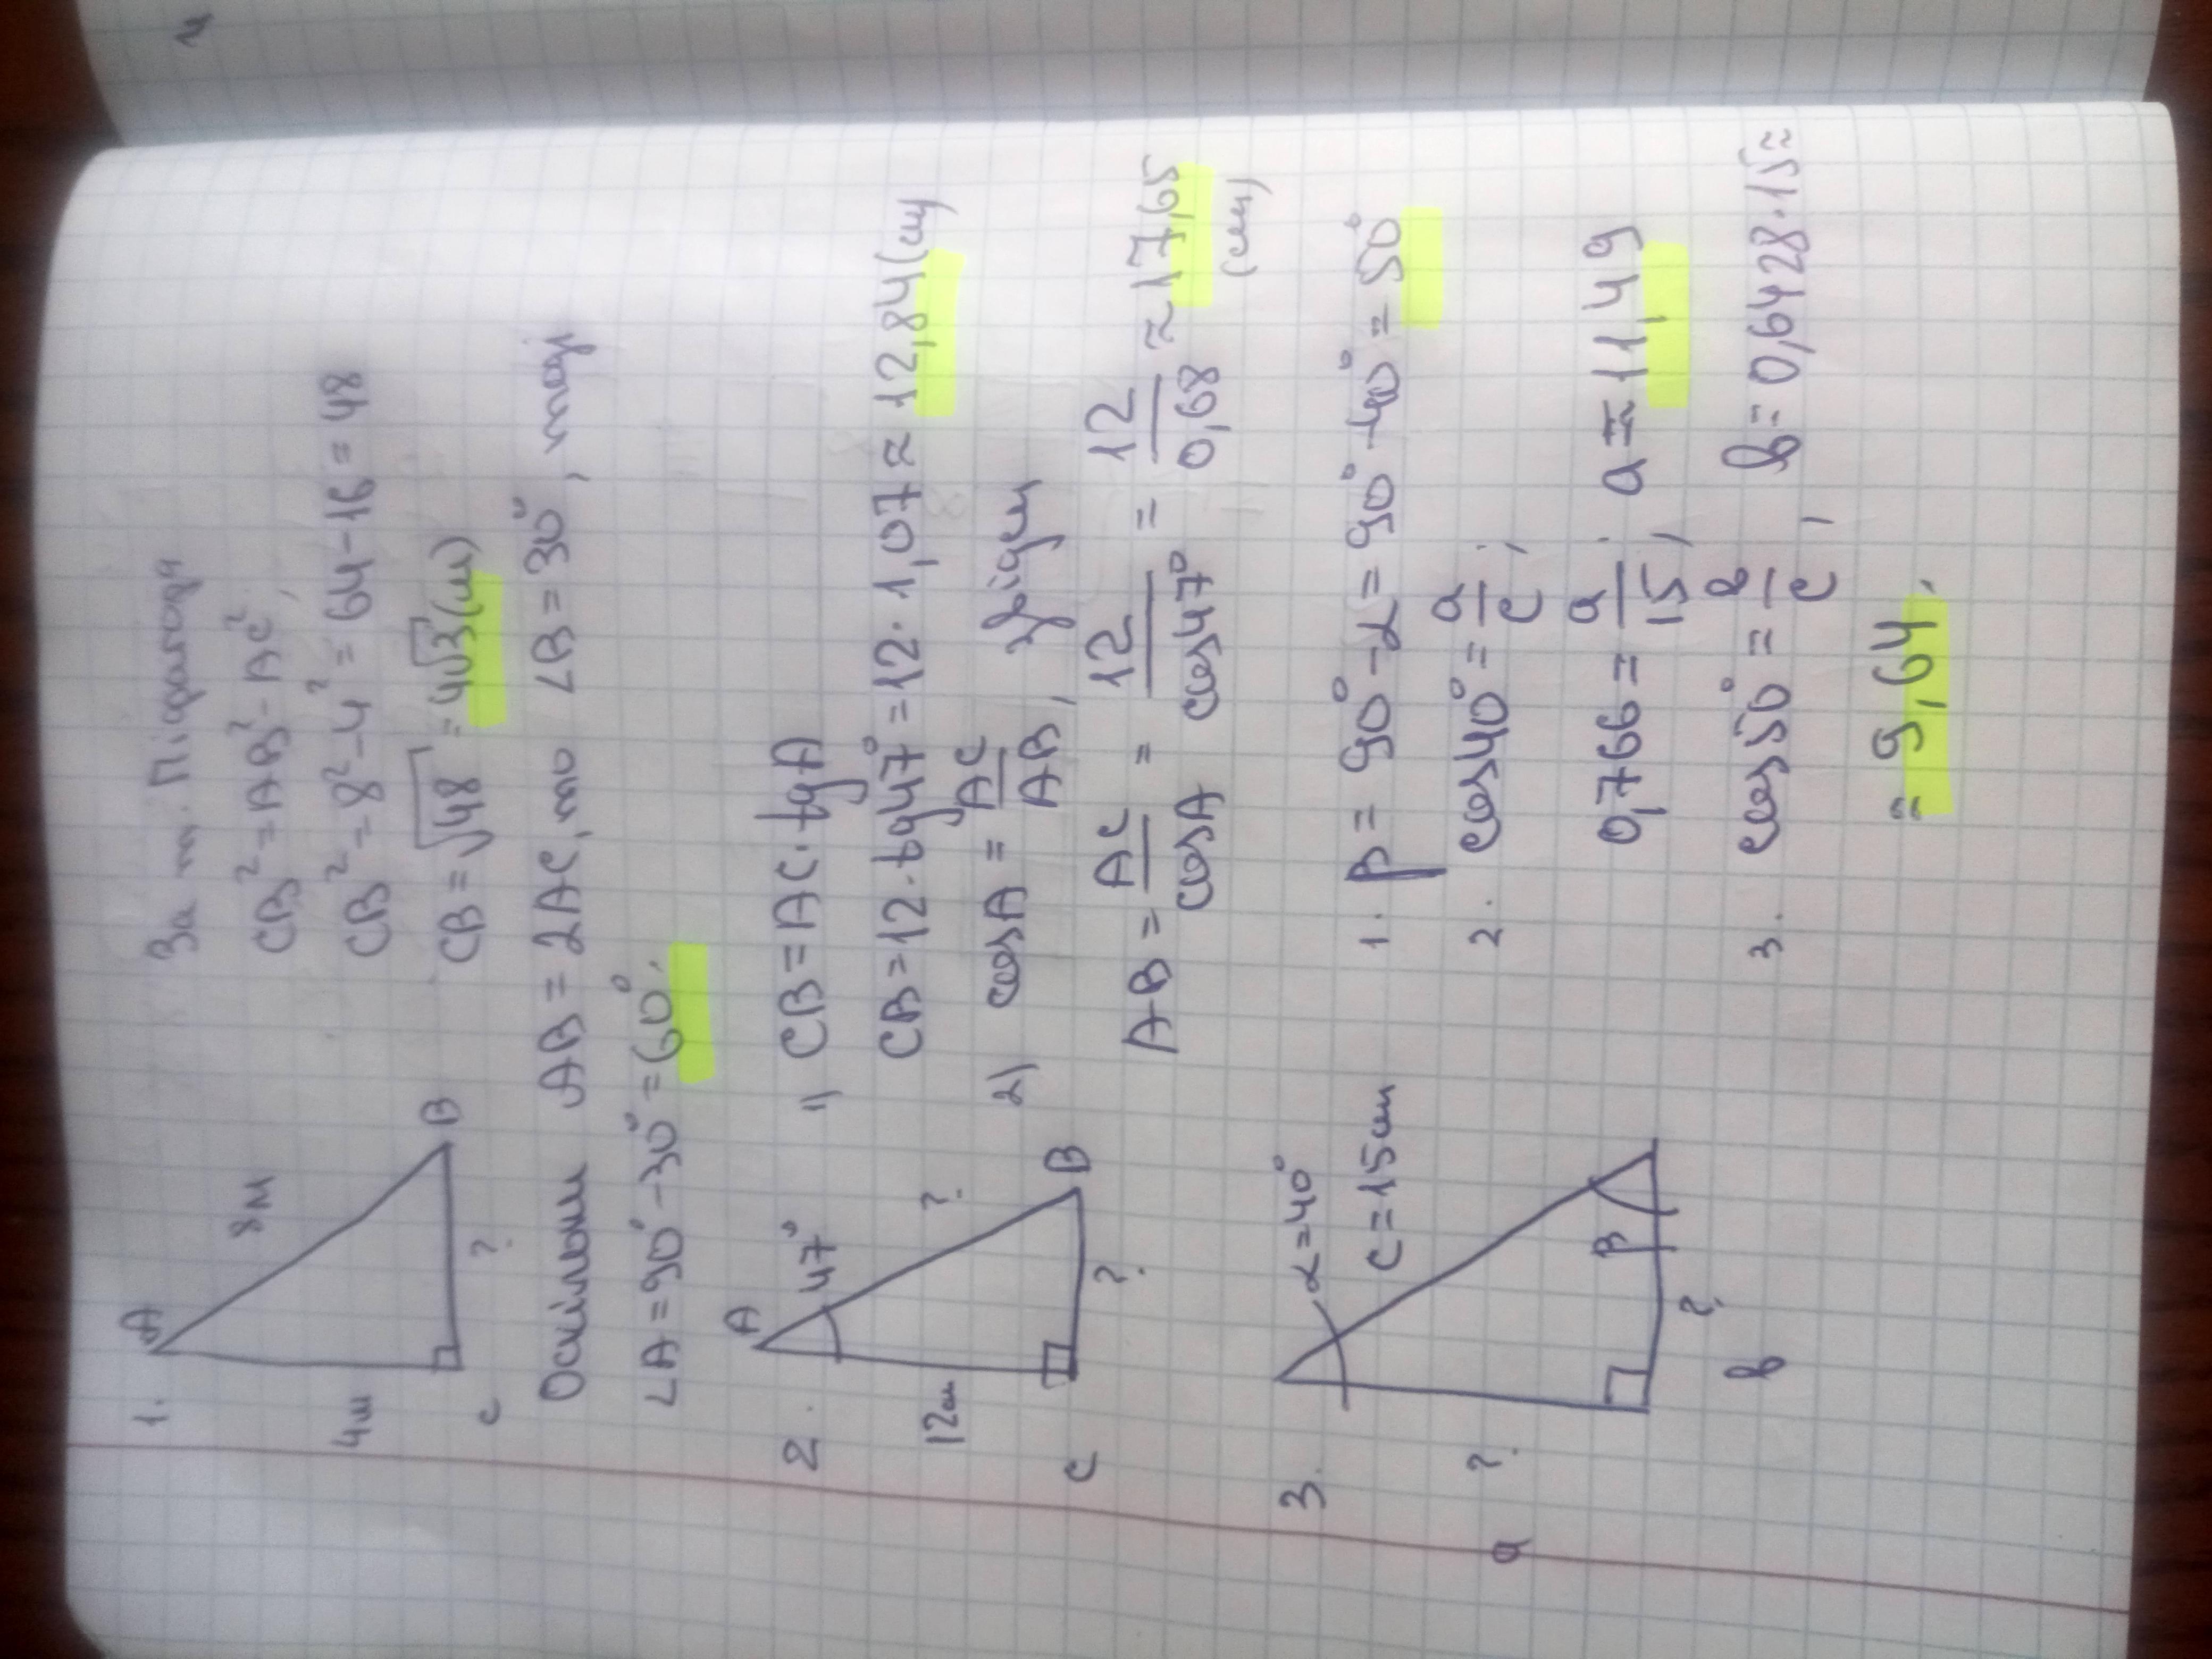 1.
A
8м
4м
?
C
B
За т. Піфагора
CB² = AB² - AC²,
CB² = 8² - 4² = 64 - 16 = 48
CB = √48 = 4√3 (м)
Оскільки AB = 2AC, то ∠B = 30°, тоді
∠A = 90° - 30° = 60°.
2.
A
47°
12см
?
?
C
B
1) CB = AC · tgA
CB = 12 · tg47° = 12 · 1,07 ≈ 12,84 (см)
2) cosA = AC/AB, звідси
AB = AC/cosA = 12/cos47° = 12/0,68 ≈ 17,65
(см)
3.
α = 40°
c = 15см
?
a
β
?
b
1. β = 90° - α = 90° - 40° = 50°
2. cos40° = a/c;
0,766 = a/15; a ≈ 11,49
3. cos50° = b/c, b = 0,6428 · 15 ≈
≈ 9,64.